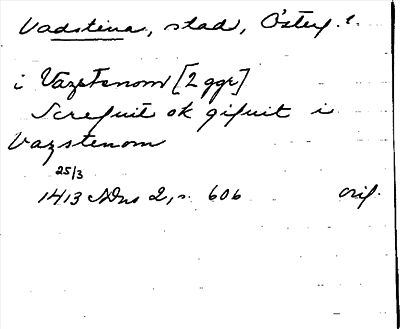 Vadstena, stad, Österg.l.
i Vazstenom [2 ggr]
Screfuit ok gifuit i
Vazstenom
25/3
1413 SDns 2, s. 606 orig.